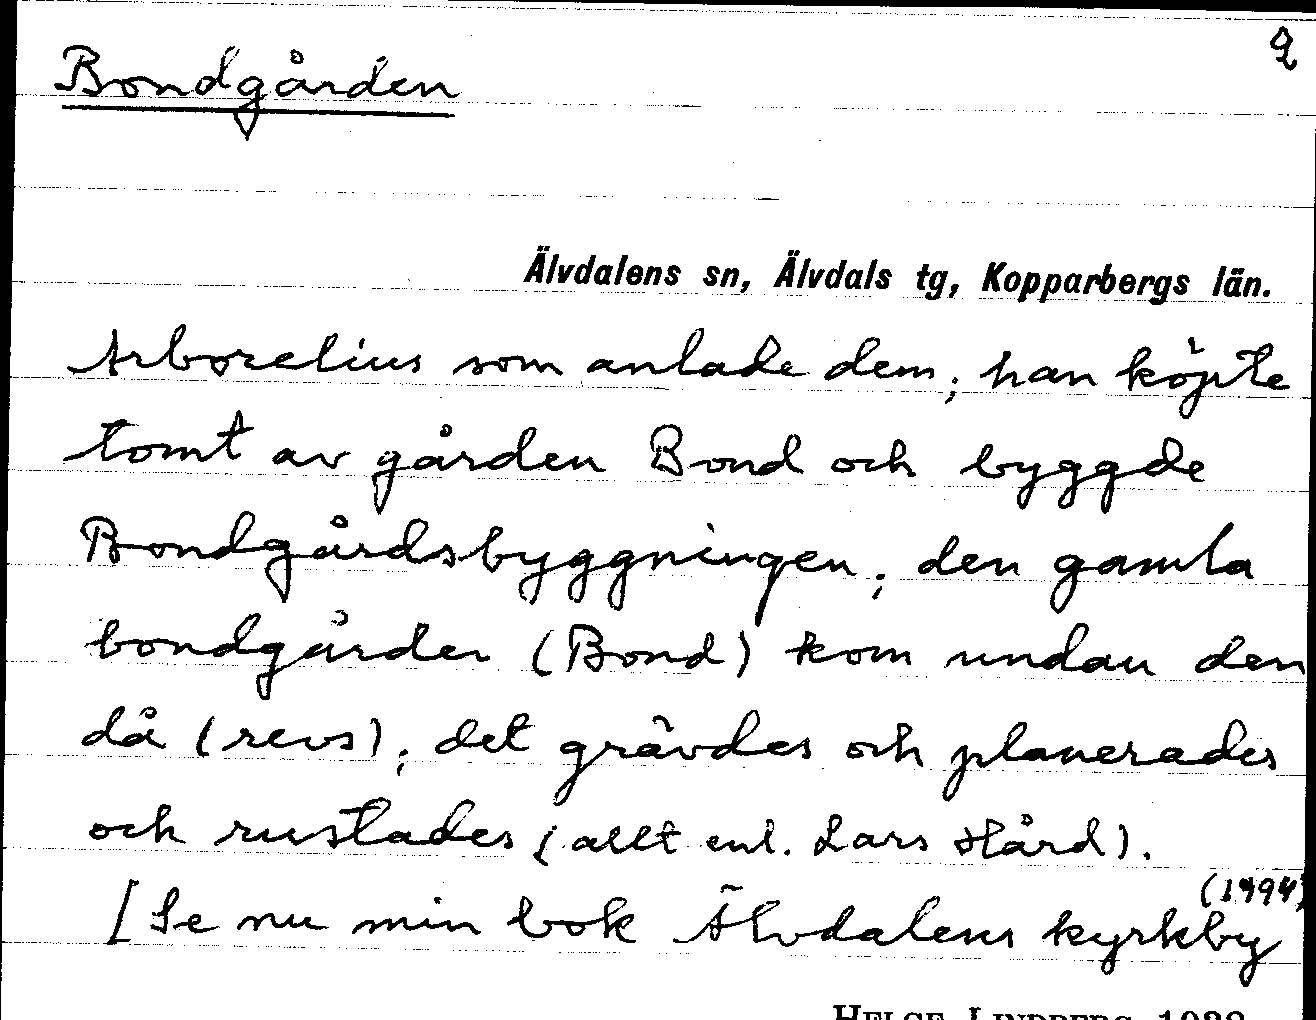 2
Bondgården
Älvdalens sn, Älvdals tg, Kopparbergs län.
Arborelius som anlade dem; han köpte
tomt av gården Bond och byggde
Bondgårdsbyggningen; den gamla
bondgården (Bond) kom undan den
då (revs); det grävdes och planerades
och rustades (allt enl. Lars Hård).
(1994)
[Se nu min bok Älvdalens kyrkby
HELGE LINDBERG